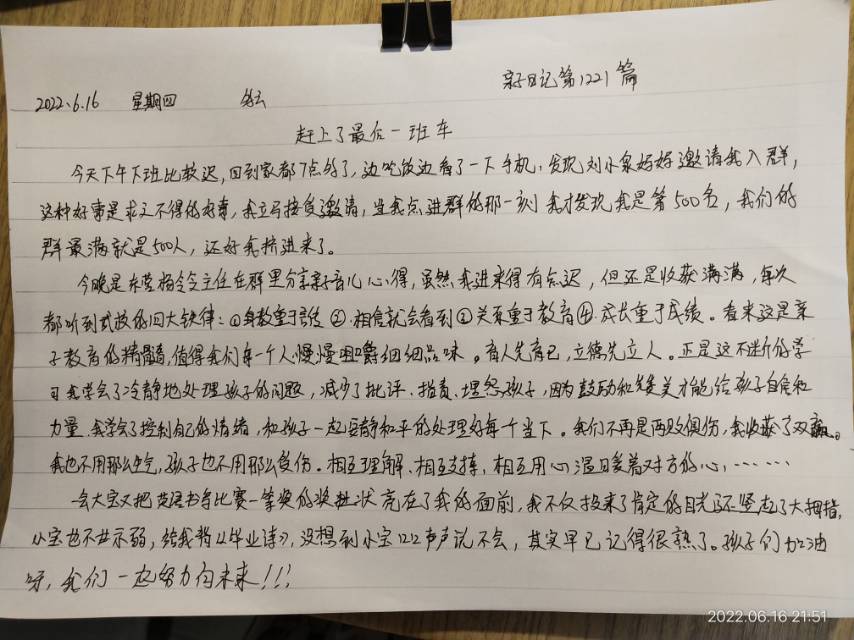 亲子日记第1221篇
2022.6.16 星期四
赶上了最后一班车
今天下午下班比较迟,回到家都7点多了,边吃饭边看了一下手机,发现刘小泉妈妈邀请我入群,
这种好事是求之不得的好事,我立马接受邀请,当我点进群的那一刻我才发现我是第500名,我们的
群最满就是500人,还好我挤进来了。
今晚是东营杨令令主任在群里分享亲子育儿心得,虽然我进来得有点迟,但还是收获满满,每次
都听到武校的四大铁律:①身教重于言传②相信就会看到③关系重于教育④成长重于成绩。看来这是亲
子教育的精髓,值得我们每一个人慢慢咀嚼细细品味。育人先育己,立德先立人。正是这不断的学
习我学会了冷静地处理孩子的问题,减少了批评、指责、埋怨孩子,因为鼓励和赞美才能给孩子自信和
力量,我学会了控制自己的情绪,和孩子一起安静和平的处理好每个当下。我们不再是两败俱伤,我收获了双赢。
我也不用那么生气,孩子也不用那么负伤。相互理解、相互支持,相互用心温暖着对方的心,……
一会大宝又把英语书写比赛一等奖的奖状亮在了我的面前,我不仅投来了肯定的目光还竖起了大拇指,
小宝也不甘示弱,给我背《毕业诗》,没想到小宝口口声声说不会,其实早已记得很熟了。孩子们加油
呀,我们一起努力向未来!!!
2022.06.16 21:51